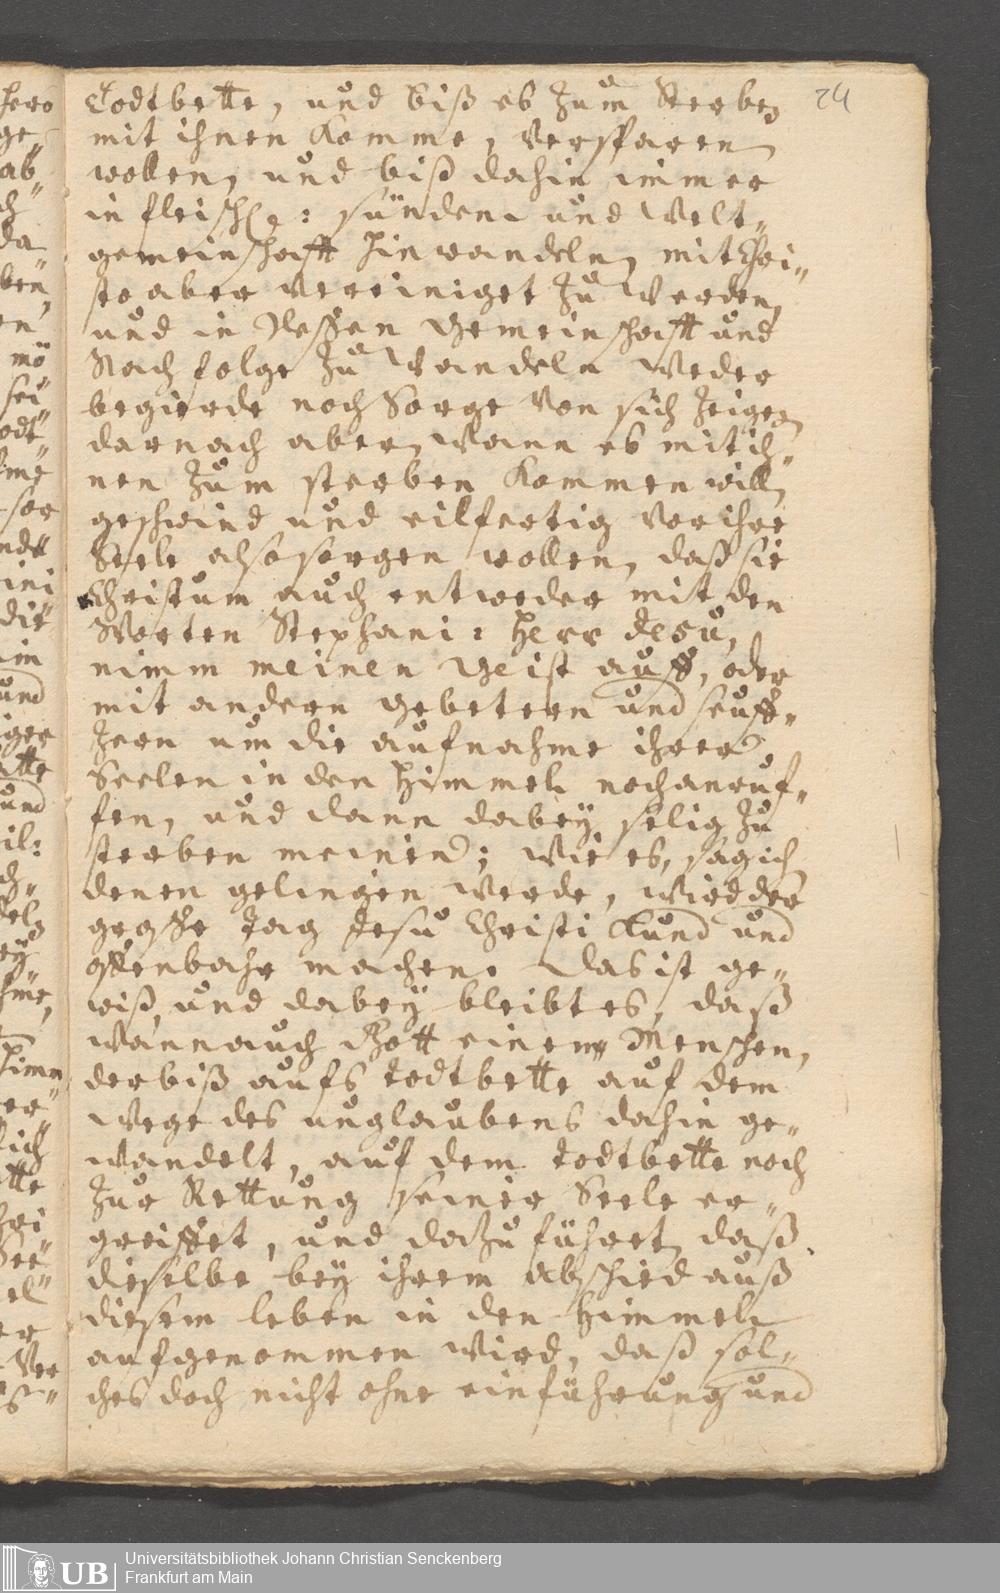 24
Todtbette, und biß es zum Sterben
mit ihnen komme, versparen
wollen, und biß dahin immer
in fleischl: sünden und Welt-
gemeinschafft hinwandeln, mit Chri-
sto aber vereiniget zu werden,
und in Dessen Gemeinschafft und
Nachfolge zu wandeln weder
begierde noch Sorge von sich zeigen
darnach aber, wann es mit ih-
nen zum sterben kommen will,
geschwind und eilfertig vor ihre
Seele also sorgen wollen, daß sie
Christum auch entweder mit den
Worten Stephani: Herr Jesu,
nimm meinen Geist auff, oder
mit andern Gebetern und seuff-
zern um die aufnahme ihrer
Seelen in den Himmel noch anruf-
fen, und dann dabey selig zu
sterben meinen; wie es, sag ich
denen gelingen werde, wird der
grosse Tag Jesu Christi kund und
offenbahr machen. Das ist ge-
wiß, und dabey bleibt es, daß
wann auch Gott einem Menschen,
der biß aufs todtbette auf dem
Wege des unglaubens dahin ge-
wandelt, auf dem todtbette noch
zur Rettung seiner Seele er-
greiffet, und dazu führet, daß
dieselbe bey ihrem abschied auß
diesem leben in den Himmel
aufgenommen wird, daß sol-
ches doch nicht ohne einführung und
UB
Universitätsbibliothek Johann Christian Senckenberg
Frankfurt am Main